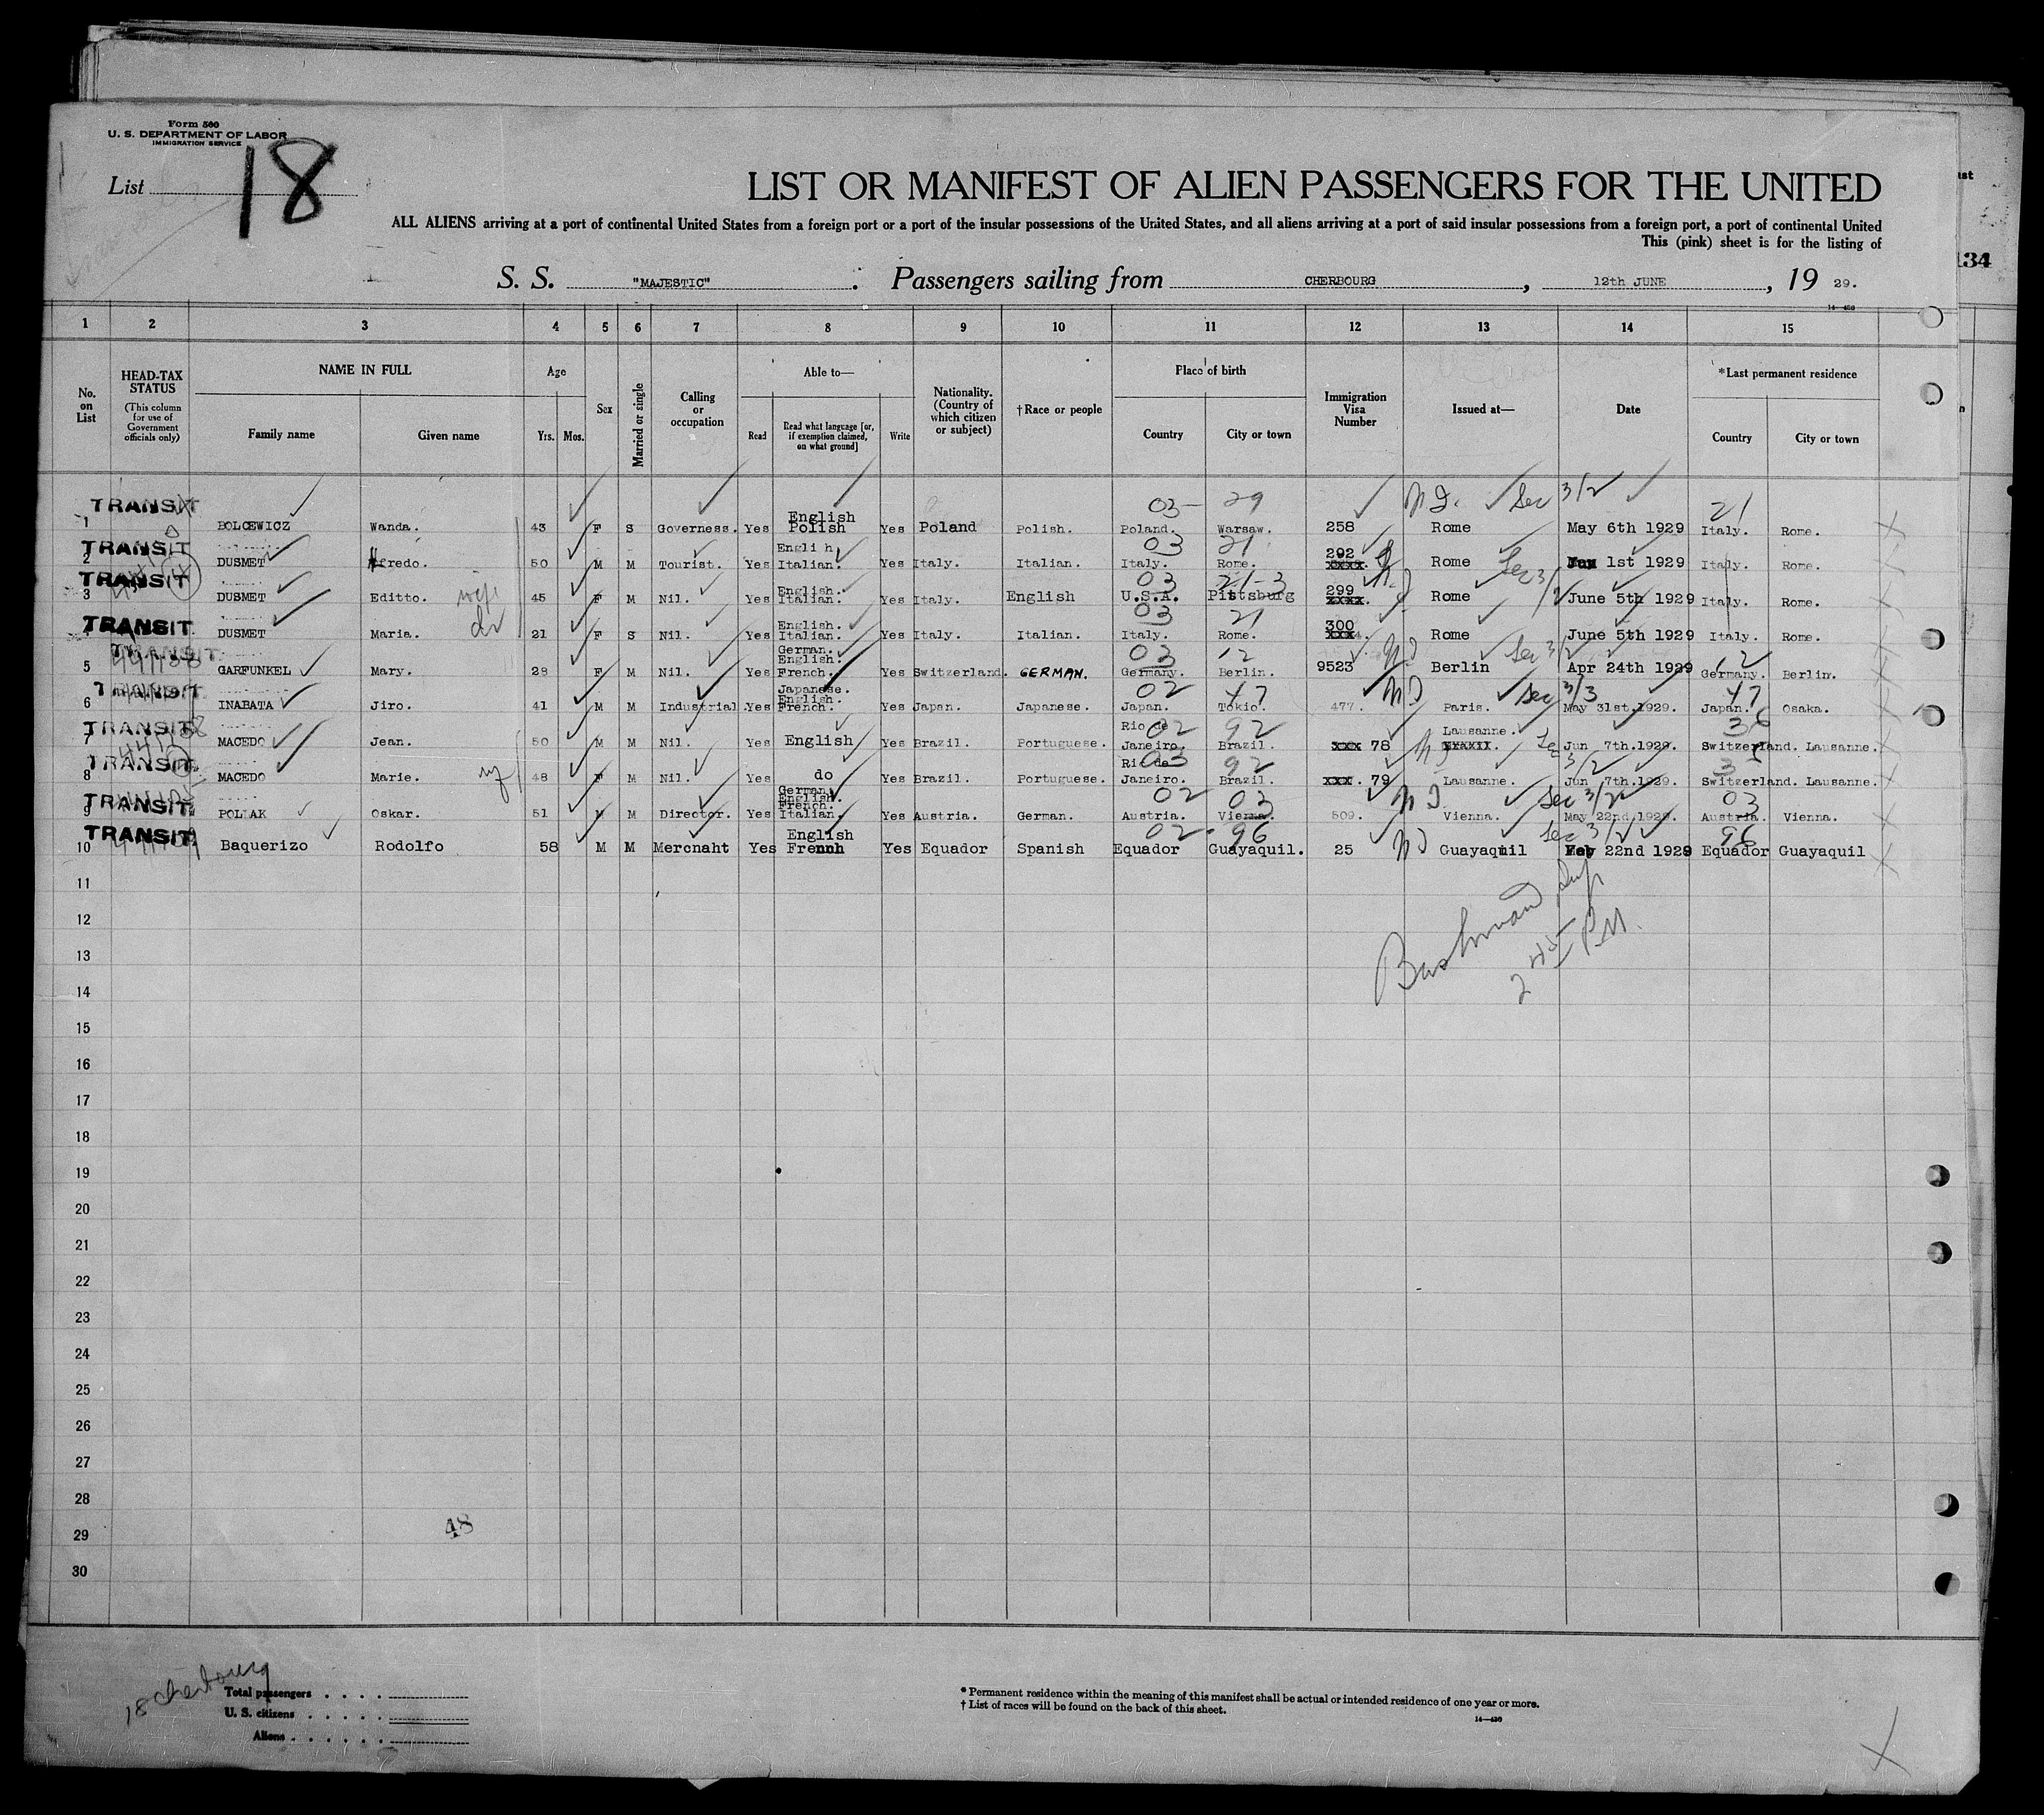 Form 500
U. S. DEPARTMENT OF LABOR
IMMIGRATION SERVICE
List 18
LIST OR MANIFEST OF ALIEN PASSENGERS FOR THE UNITED
ALL ALIENS arriving at a port of continental United States from a foreign port or a port of the insular possessions of the United States, and all aliens arriving at a port of said insular possessions from a foreign port, a port of continental United
This (pink) sheet is for the listing of
134
S. S. "MAJESTIC" Passengers sailing from CHERBOURG, 12th JUNE, 19 29.
1 2 3 4 5 6 7 8 9 10 11 12 13 14 15
No. on List
HEAD-TAX STATUS (This column for use of Government officials only)
NAME IN FULL Family name Given name
Age Yrs. Mos.
Sex
Married or single
Calling or occupation
Able to— Read Read what language [or, if exemption claimed, on what ground] Write
Nationality. (Country of which citizen or subject)
†Race or people
Place of birth Country City or town
Immigration Visa Number
Issued at—
Date
*Last permanent residence Country City or town
03- 29 Sec 3/2 21
TRANSIT 1 BOLCEWICZ Wanda. 43 F S Governess. Yes English Polish Yes Poland Polish. Poland. Warsaw. 258 Rome May 6th 1929 Italy. Rome.
03 21
TRANSIT 2 DUSMET Alfredo. 50 M M Tourist. Yes Engli h Italian. Yes Italy. Italian. Italy. Rome. 292 xxxx. Rome 1st 1929 Italy. Rome.
03 21-3 Sec 3/2
TRANSIT 3 DUSMET Editto. wife 45 F M Nil. Yes English. Italian. Yes Italy. English U.S.A. Pittsburg 299 xxxx. Rome June 5th 1929 Italy. Rome.
03 21
TRANSIT DUSMET Maria. 21 F S Nil. Yes English. Italian. Yes Italy. Italian. Italy. Rome. 300 xxx. Rome June 5th 1929 Italy. Rome.
03 12 Sec 3/2 12
TRANSIT 5 GARFUNKEL Mary. 28 F M Nil. Yes German. English. French. Yes Switzerland. GERMAN. Germany. Berlin. 9523 Berlin Apr 24th 1929 Germany. Berlin.
02 47 Sec 3/3 47
TRANSIT 6 INABATA Jiro. 41 M M Industrial. Yes Japanese. English. French. Yes Japan. Japanese. Japan. Tokio. 477. Paris. May 31st.1929. Japan. Osaka.
02 92
TRANSIT 7 MACEDO Jean. 50 M M Nil. Yes English Yes Brazil. Portuguese. Rio de Janeiro. Brazil. xxx 78 Lausanne. Jun 7th.1929. Switzerland. Lausanne.
03 92 3/2
TRANSIT 8 MACEDO Marie. 48 F M Nil. Yes do Yes Brazil. Portuguese. Rio de Janeiro. Brazil. xxx. 79 Lausanne. Jun 7th.1929. Switzerland. Lausanne.
02 03 Sec 3/2 03
TRANSIT 9 POLLAK Oskar. 51 M M Director. Yes German. English. French. Italian. Yes Austria. German. Austria. Vienna. 509. Vienna. May 22nd.1929. Austria. Vienna.
02- 96 Sec 3/2 96
TRANSIT 10 Baquerizo Rodolfo 58 M M Mercnaht Yes English Frennh Yes Equador Spanish Equador Guayaquil. 25 Guayaquil 22nd 1929 Equador Guayaquil
11
12
13
14
2 45 P.M.
15
16
17
18
19
20
21
22
23
24
25
26
27
28
29 48
30
18 Cherbourg
Total passengers . . . .
U. S. citizens . . . . .
Aliens . . . . . .
* Permanent residence within the meaning of this manifest shall be actual or intended residence of one year or more.
† List of races will be found on the back of this sheet.
14—430